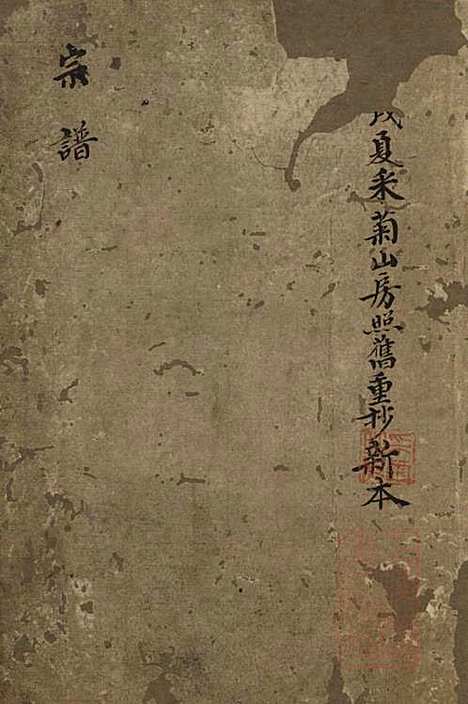 戌夏采菊山房照舊重抄新本
宗譜